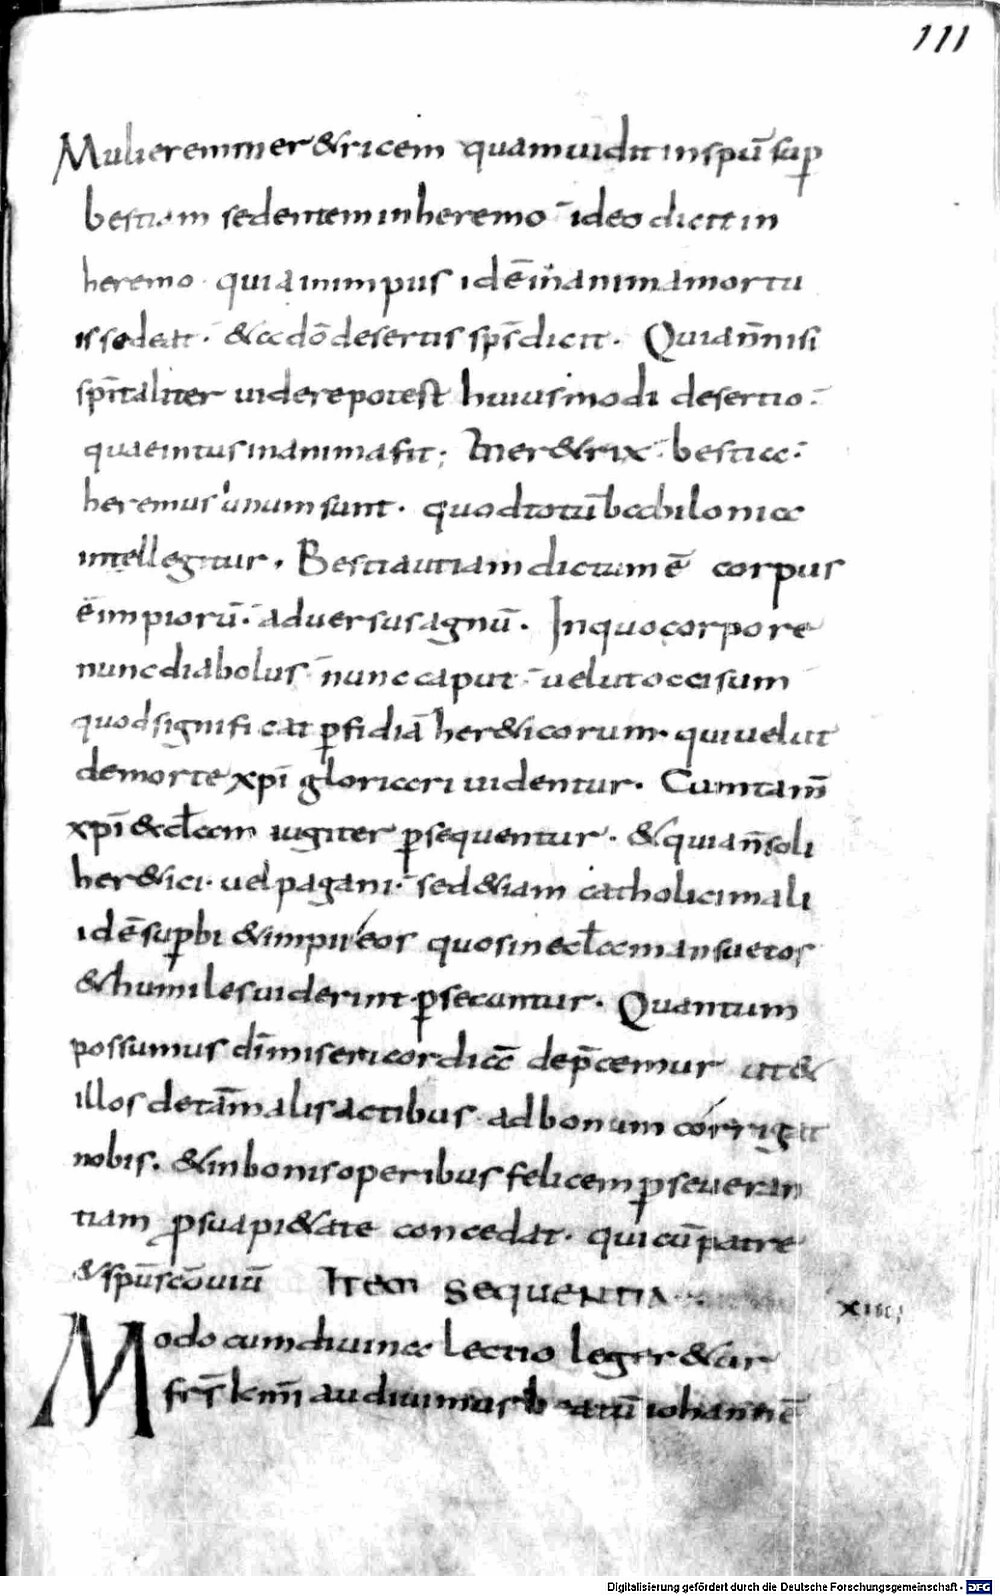 111
Mulieremmer&ricem quamuidit inspū sup
bestiam sedentem inheremo · ideo dicit in
heremo · quia inimpiis idē in anima mortu
is sedeat · & adō desertis sps̄ dicit · Quia n̄ nisi
spītaliter uidere potest huiusmodi desertio ·
quae intus in anima fit ; mer&rix · bestia ·
heremus unum sunt · quod totū babilonia
intellegitur · Bestia uttam dictum ē corpus
ē impiorū · aduersus agnū · In quo corpore
nunc diabolus nunc caput uelut occisum
quod significat pfidiā her&icorum · qui uelut
de morte xpī gloriari uidentur · Cum tam̄
xpī &clam iugiter psequentur · & quia n̄ soli
her&ici · uel pagani · sed &iam catholici mali
idē supbi & impii eos quos in eclā mansuetos
& humiles uiderint psecuntur · Quantum
possumus dī misericordiā dep̄cemur ut &
illos de tam̄ malis actibus ad bonum corrigat
nobis · & in bonis operibus felicem pseueran
tiam p sua pi&ate concedat · qui cū patre
& spū scō uiuit Item sequentia
xiiii
Modo cum diuina lectio leger&ur
frs̄ km̄i audiuimus b atū iohannē
Digitalisierung gefördert durch die Deutsche Forschungsgemeinschaft - DFG